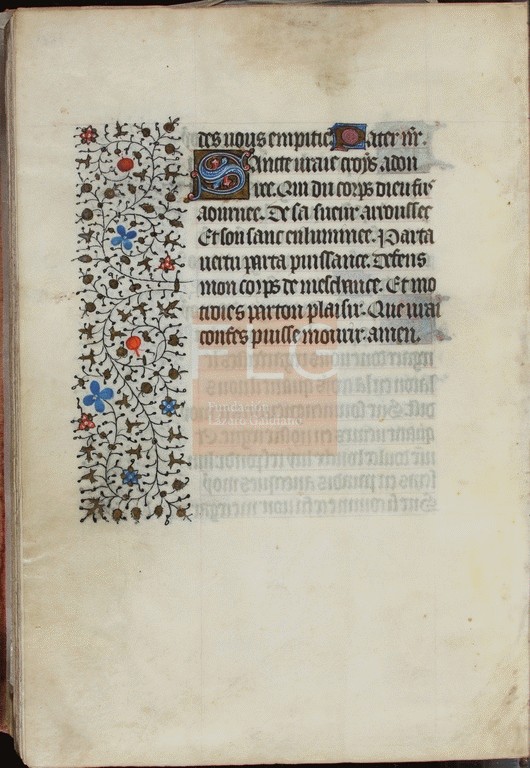 des nous empitie Pater nr̄.
Sancte uraie croys adou
ree. Qui du corps dieu fus
aournee. De sa sueur arousee
Et son sanc enluminee. Par ta
uertu par ta puissance. Defens
mon corps de meschance. Et mo
troies par ton plaisir. Que urai
confes puisse mourir. amen.
FLC
Fundación
Lázaro Galdiano